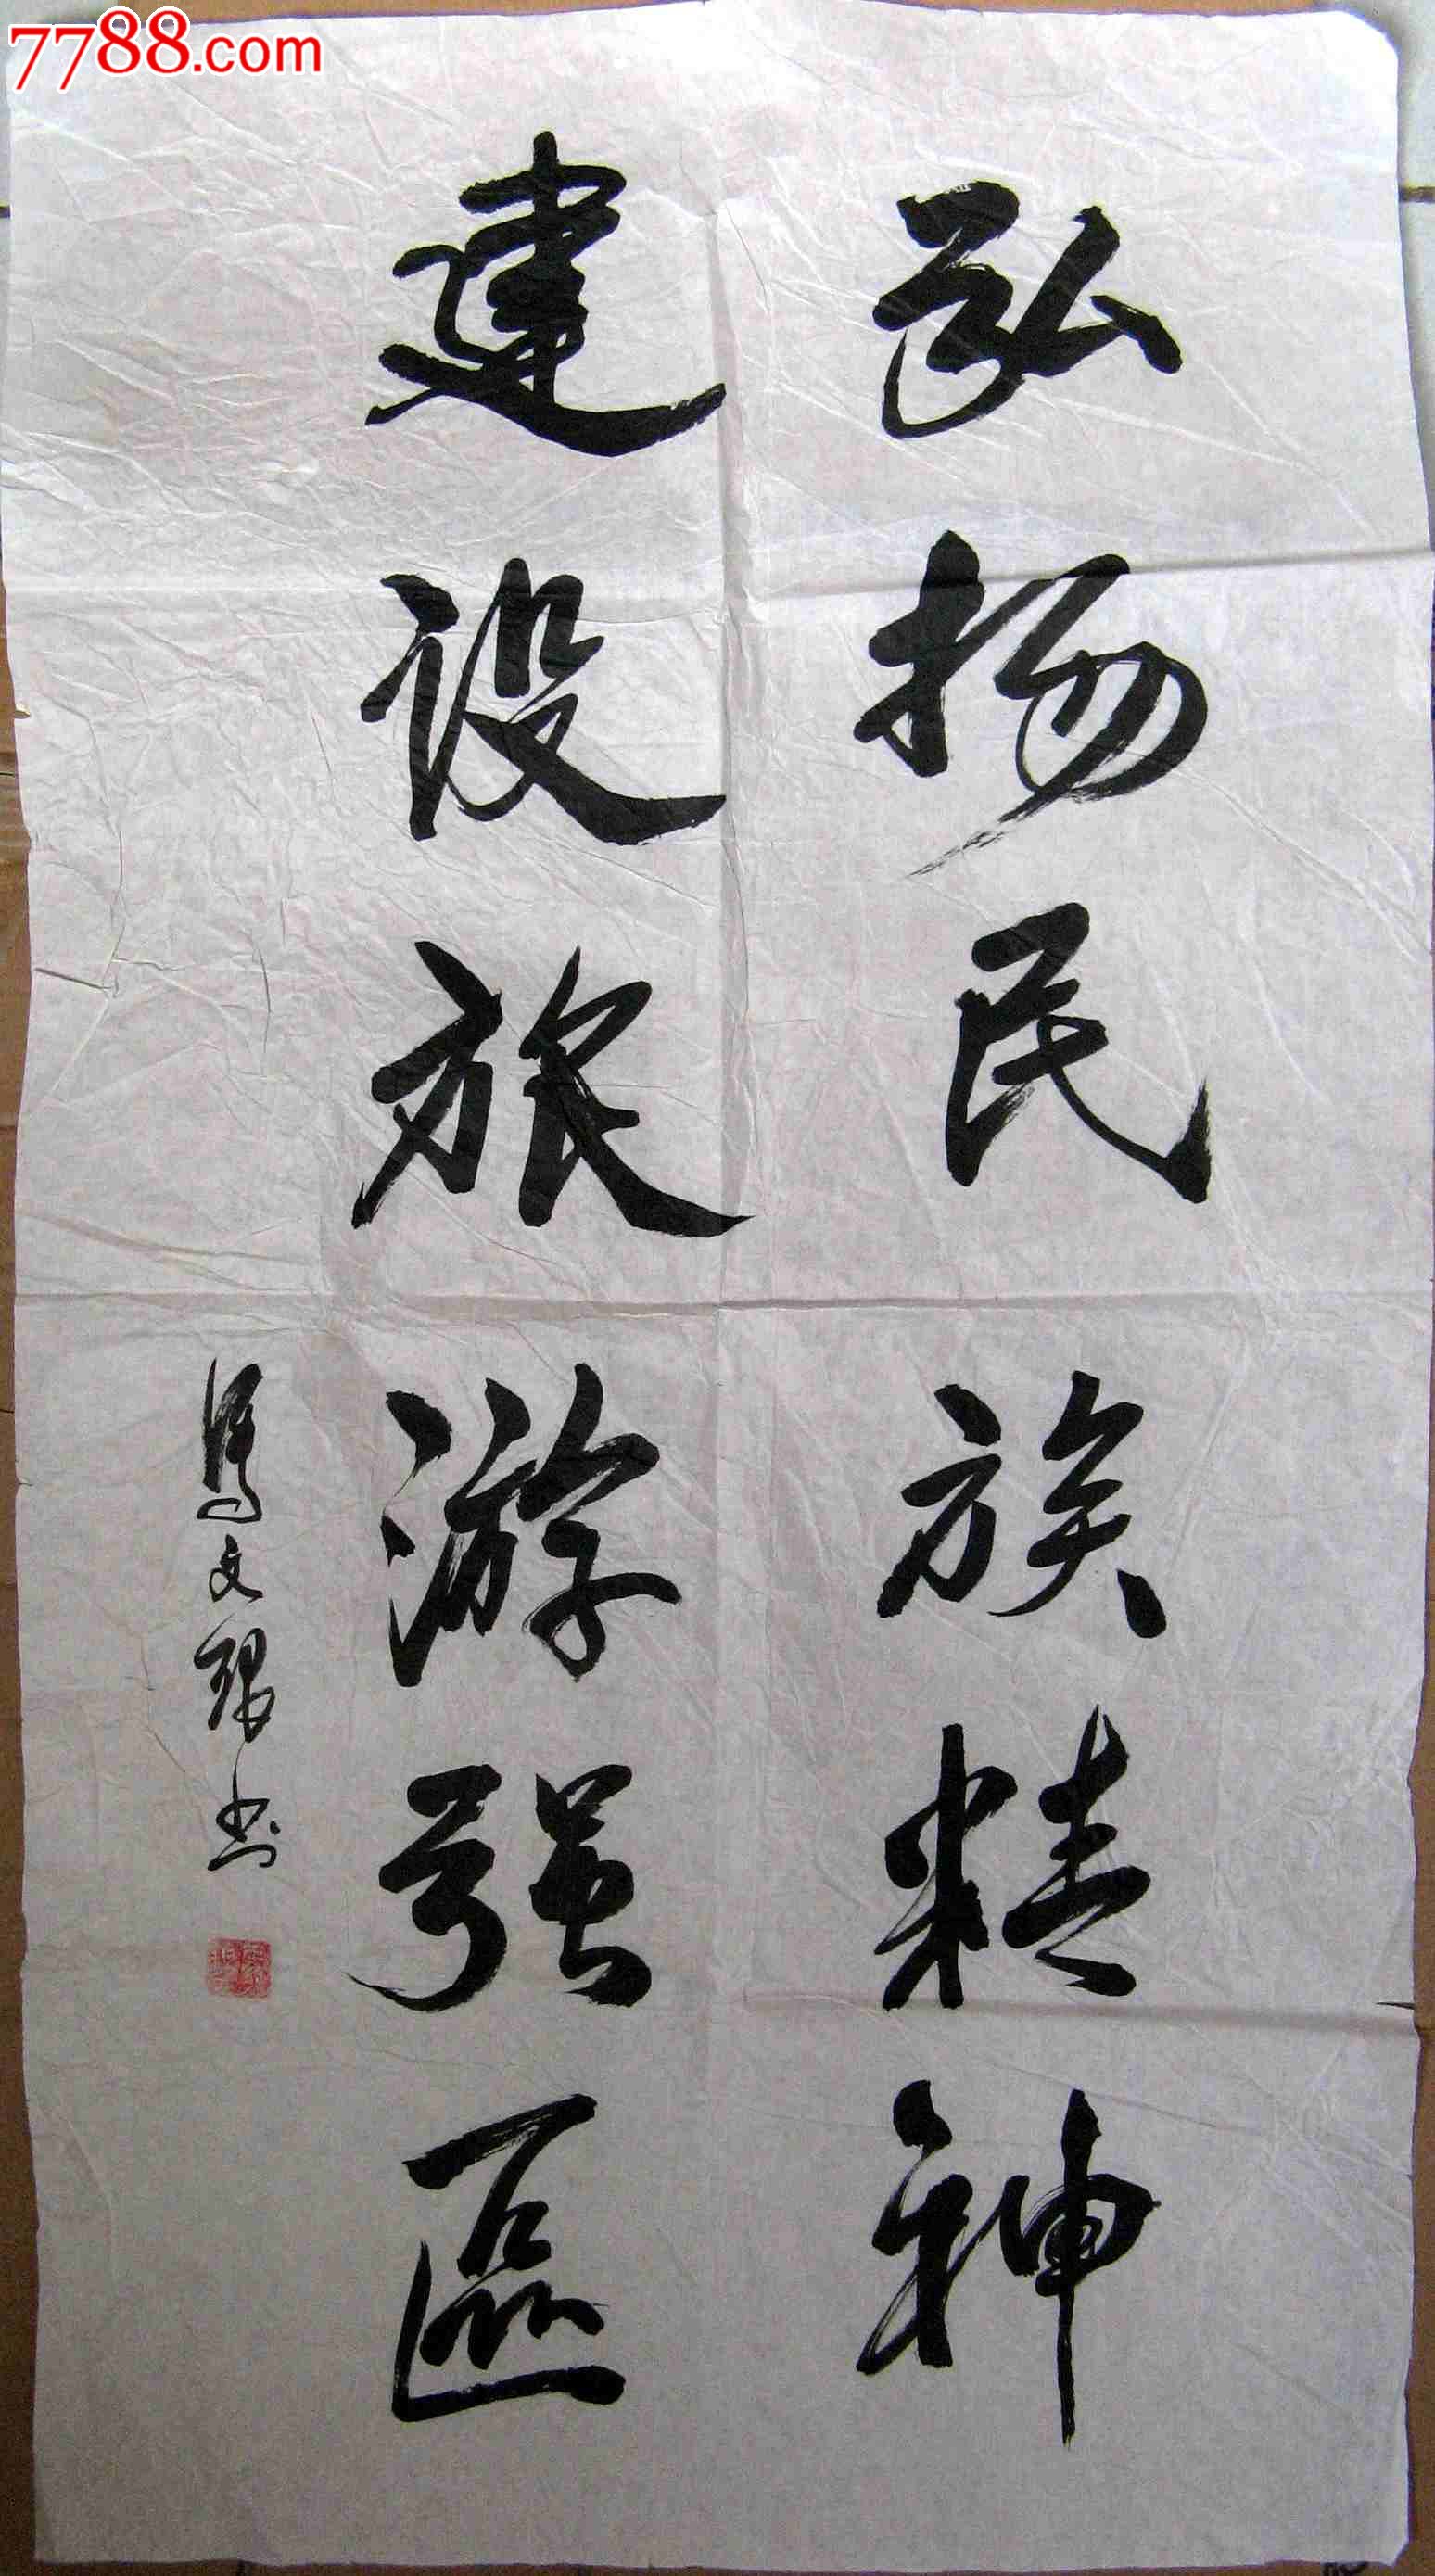 7788.com
弘扬民族精神
建设旅游强區
文 书